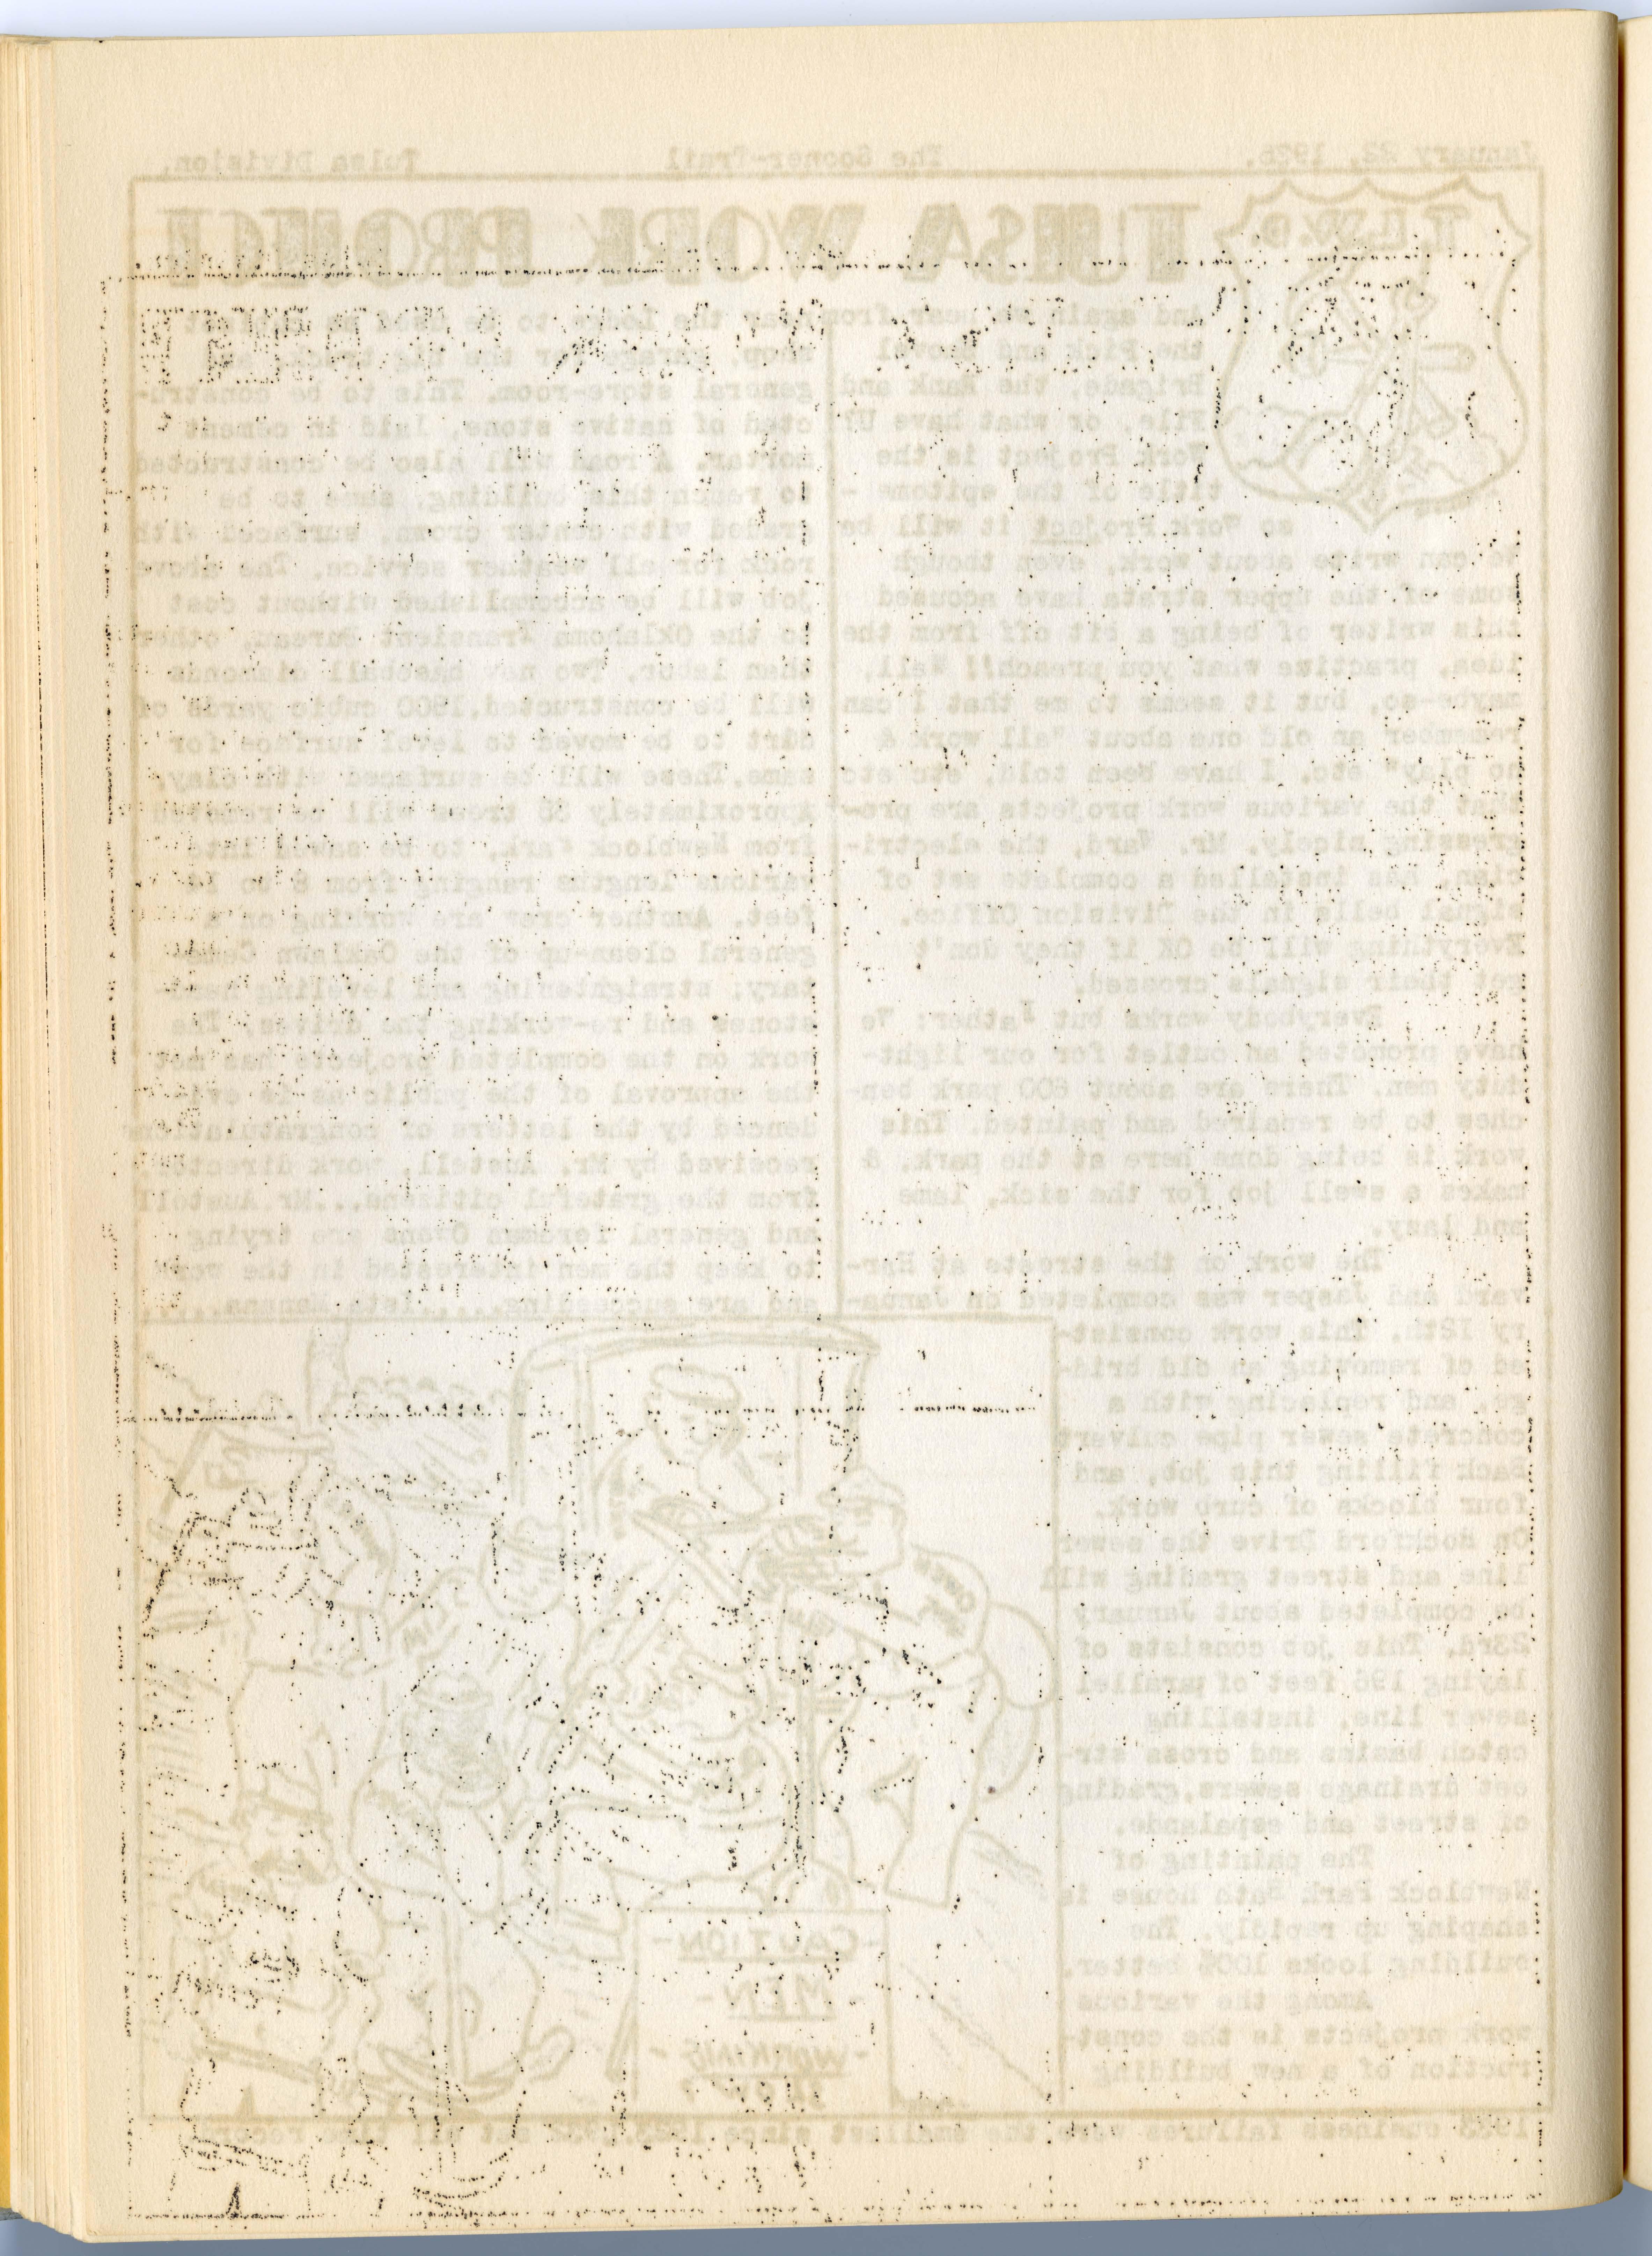 January 22, 1935.
The Sooner-Trail
Tulsa Division.
TULSA WORK PROJECT
And again we hear from
the Pick and Shovel
Brigade, the Rank and
File, or what have U?
Work Project is the
title of the epitome -
so Work Project it will be
We can write about work, even though
some of the upper strata have accused
this writer of being a bit off from the
idea, practice what you preach!! Well,
maybe-so, but it seems to me that I can
remember an old one about "all work &
no play" etc. I have been told, etc etc
that the various work projects are pro-
gressing nicely. Mr. Ward, the electri-
cian, has installed a complete set of
signal bells in the Division Office.
Everything will be OK if they don't
get their signals crossed.
Everybody works but Father: We
have promoted an outlet for our light
duty men. There are about 600 park ben-
ches to be repaired and painted. This
work is being done here at the park, &
makes a swell job for the sick, lame
and lazy.
The work on the streets at Har-
vard and Jasper was completed on Janua-
ry 12th. This work consist-
ed of removing an old brid-
ge, and replacing with a
concrete sewer pipe culvert
Back filling this job, and
four blocks of curb work.
On Rockford Drive the sewer
line and street grading will
be completed about January
23rd. This job consists of
laying 196 feet of parallel
sewer line, installing
catch basins and cross str-
eet drainage sewers, grading
of street and espalande.
The painting of
Newblock Park Gate house is
shaping up rapidly. The
building looks 100% better.
Among the various
work projects is the const-
ruction of a new building
the to be used
shop, for the
general store-room. This to be constru-
cted of native stone, laid in cement
mortar. A road will also be constructed
to reach this building, same to be
graded with center crown, surfaced with
rock for all weather service. The above
job will be accomplished without cost
to the Oklahoma Transient Bureau, other
than labor. Two new baseball diamonds
will be constructed. 1900 cubic yards of
dirt to be moved to level surface for
same. These will be surfaced with clay.
Approximately 35 trees will be removed
from Newblock Park, to be sawed into
various lengths ranging from 8 to
feet. Another crew are working on a
general clean-up of the Oaklawn Ceme-
tary; straightening and leveling
stones and re-working the drives. The
work on the completed projects has met
the approval of the public as is evi-
denced by the letters of congratulations
received by Mr. Austell, work director
from the grateful citizens...Mr Austell
and general foreman Ovens are trying
to keep the men interested in the work
and are succeeding
-CAUTION-
MEN
-WORKING-
1933 business failures were the smallest since